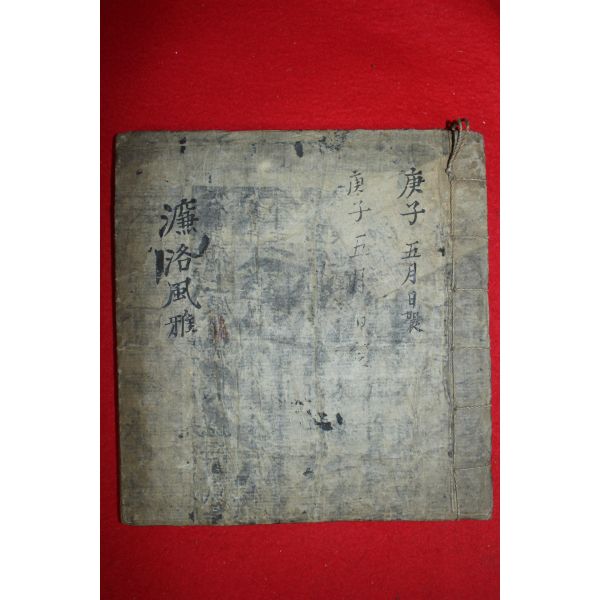 庚子 五月日
庚子 五月 日
濂洛風雅